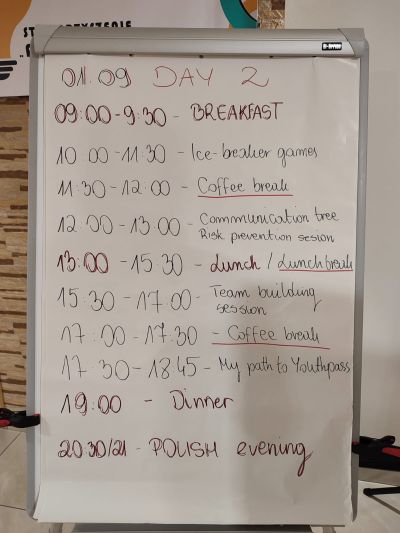 01.09 DAY 2
09:00-9:30 - BREAKFAST
10:00-11:30 - Ice-breaker games
11:30-12:00 - Coffee break
12:00-13:00 - Communication tree
Risk prevention sesion
13:00 - 15:30 - Lunch / Lunch break
15:30 - 17:00 - Team building
session
17:00 - 17:30 - Coffee break
17:30 - 18:45 - My path to Youthpass
19:00 - Dinner
20:30/21 - POLISH evening